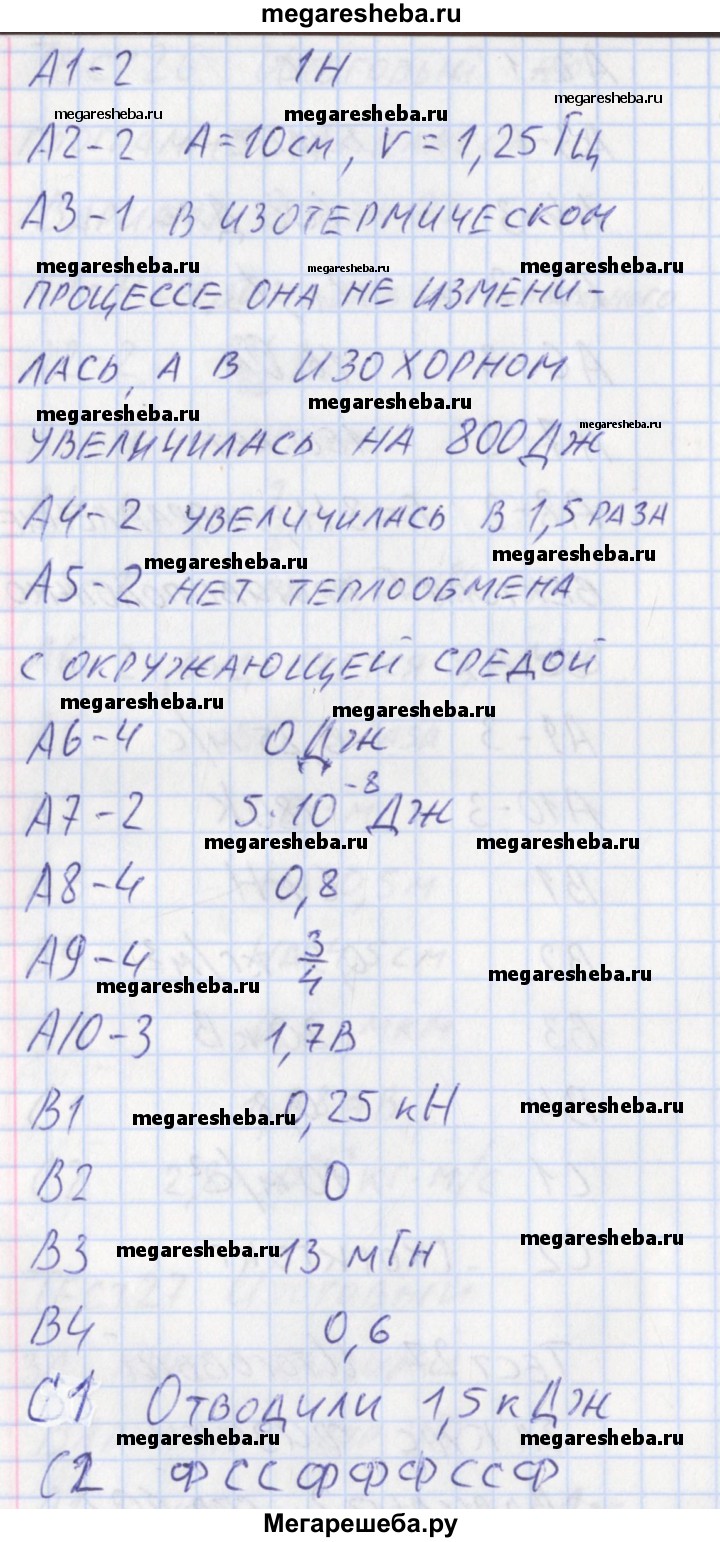 megaresheba.ru
А1-2 1Н
megaresheba.ru megaresheba.ru megaresheba.ru
А2-2 А=10см, ν=1,25Гц
А3-1 В ИЗОТЕРМИЧЕСКОМ
megaresheba.ru megaresheba.ru megaresheba.ru
ПРОЦЕССЕ ОНА НЕ ИЗМЕНИ-
ЛАСЬ, А В ИЗОХОРНОМ
megaresheba.ru megaresheba.ru
УВЕЛИЧИЛАСЬ НА 800Дж
megaresheba.ru
А4-2 УВЕЛИЧИЛАСЬ В 1,5 РАЗА
megaresheba.ru megaresheba.ru
А5-2 НЕТ ТЕПЛООБМЕНА
С ОКРУЖАЮЩЕЙ СРЕДОЙ
megaresheba.ru megaresheba.ru
А6-4 0 Дж
А7-2 5·10⁻⁸ Дж
megaresheba.ru megaresheba.ru
А8-4 0,8
А9-4 3/4
megaresheba.ru megaresheba.ru
А10-3 1,7В
В1 0,25 кН
megaresheba.ru megaresheba.ru
В2 0
В3 13 мГн
megaresheba.ru megaresheba.ru
В4 0,6
С1 Отводили 1,5кДж
megaresheba.ru megaresheba.ru
С2 ФССФФФССФ
Мегарешеба.ру